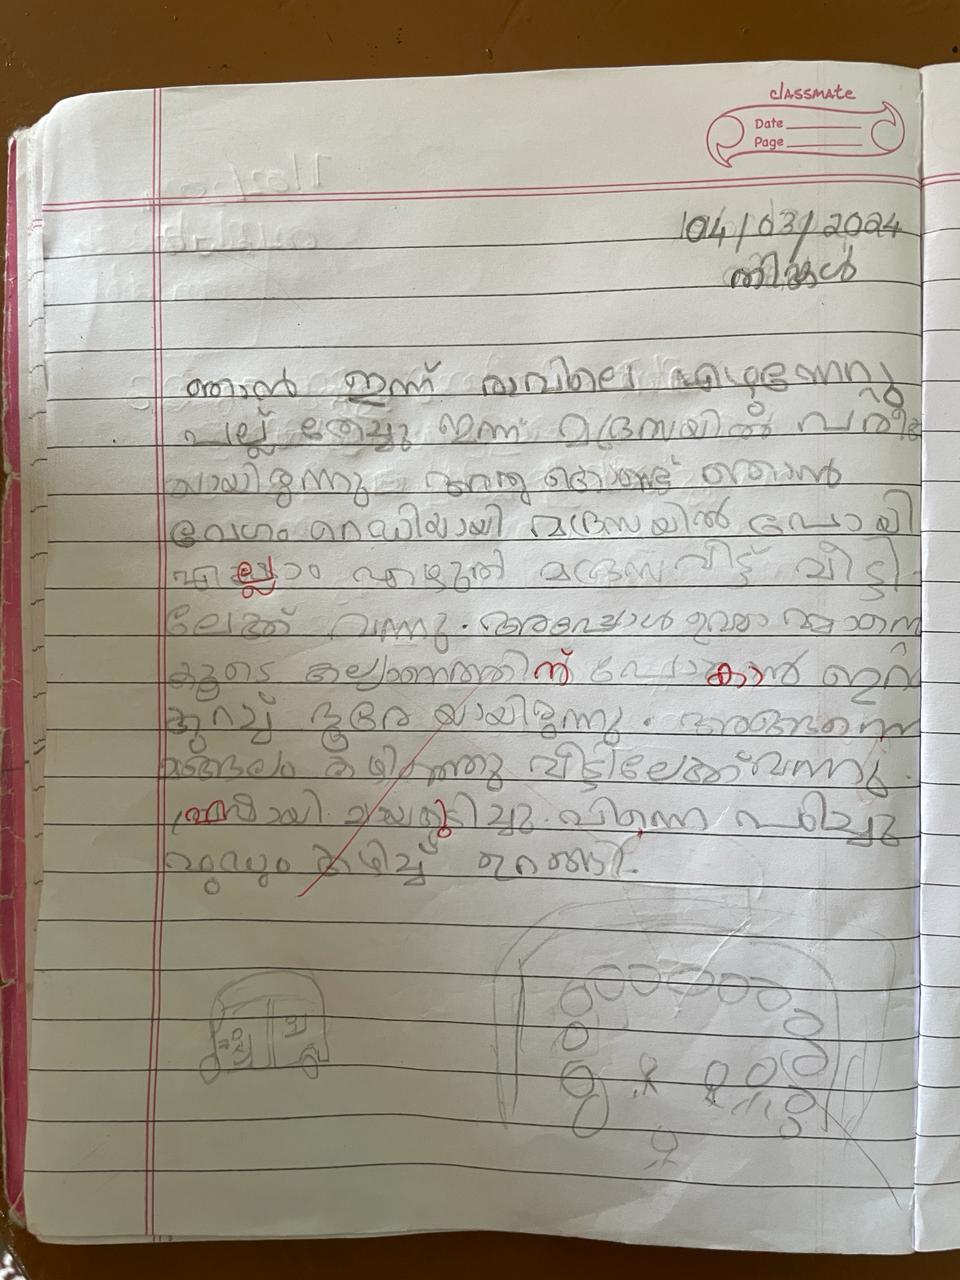 classmate
Date
Page
04/03/2024
തിങ്കൾ
ഞാൻ ഇന്ന് രാവിലെ എഴുന്നേറ്റു
പല്ല് തേച്ചു ഇന്ന് മദ്രസയിൽ പരീക്ഷ
യായിരുന്നു അതു കൊണ്ട് ഞാൻ
വേഗം റെഡിയായി മദ്രസയിൽ പോയി
എല്ലാം എഴുതി മദ്രസ വിട്ട് വീട്ടി
ലേക്ക് വന്നു. അപ്പോൾ ഉമ്മ
കൂടെ കല്യാണത്തിന് പോകാൻ
കുറച്ച് ദൂരെ യായിരുന്നു. അങ്ങനെ
കഴിഞ്ഞു വീട്ടിലേക്ക് വന്നു.
ചായകുടിച്ചു. പിന്നെ പഠിച്ചു
കഴിച്ച് ഉറങ്ങി.